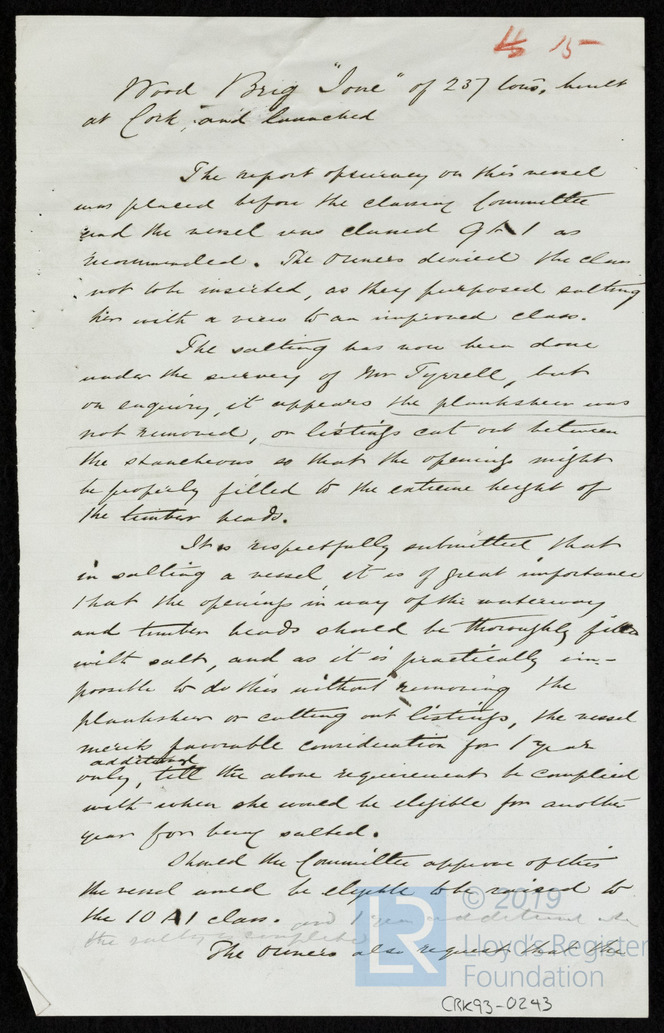 15
Wood Brig "Ione" of 237 tons, built
at Cork, and launched
The report of survey on this vessel
was placed before the classing Committee
and the vessel was classed 9 A 1 as
recommended. The Owners desired the class
not to be inserted, as they purposed salting
her with a view to an improved class.
The salting has now been done
under the survey of Mr Tyrrell, but
on enquiry, it appears the planksheer was
not removed, or listings cut out between
the stancheons so that the openings might
be properly filled to the extreme height of
the timber heads.
It is respectfully submitted that
in salting a vessel, it is of great importance
that the openings in way of the waterway
and timber heads should be thoroughly filled
with salt, and as it is practically im-
possible to do this without removing the
planksheer or cutting out listings, the vessel
merits favorable consideration for 1 year
additional
only, till the above requirement be complied
with when she would be eligible for another
year for being salted.
Should the Committee approve of this
the vessel would be eligible to be raised to
the 10 A 1 class. and 1 year additional when
the salting is complete
The Owners also request that the
© 2019
LR
Lloyd's Register
Foundation
CRK93-0243